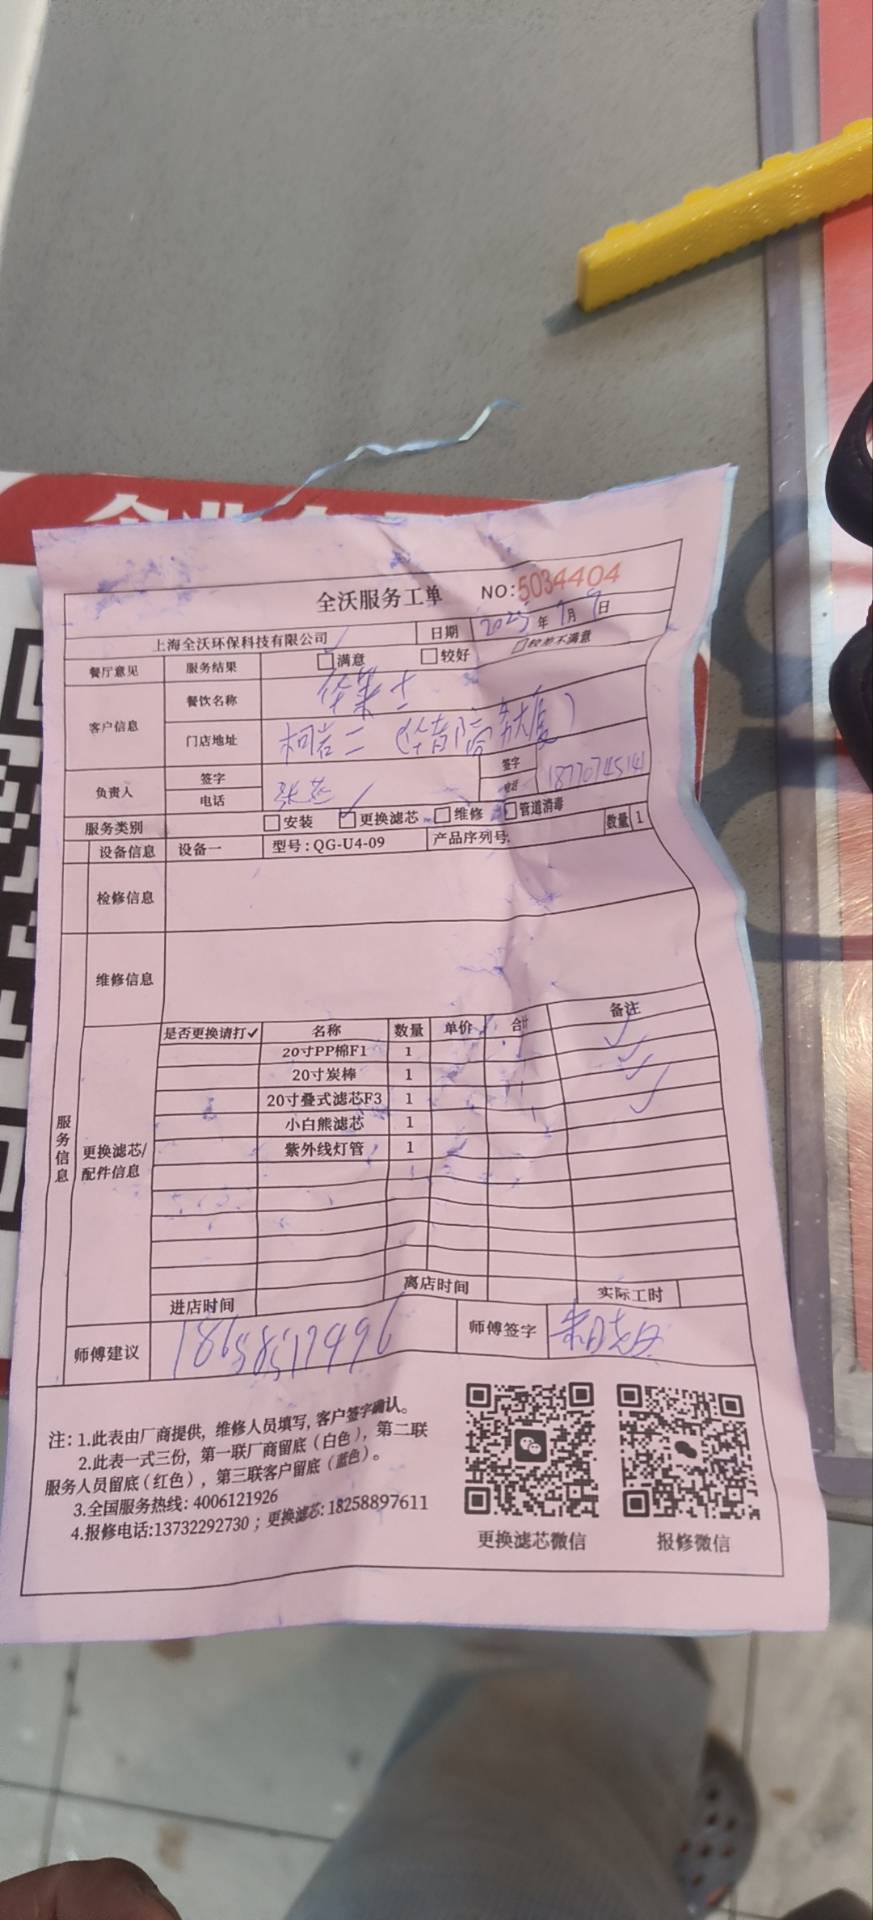 全沃服务工单 NO:5034404
上海全沃环保科技有限公司 日期 2025年9月9日
餐厅意见 服务结果 满意 较好 不满意
客户信息 餐饮名称 华莱士
门店地址 柯岩二
负责人 签字 签字
电话 电话 18770745141
服务类别 安装 更换滤芯 维修 管道消毒
设备信息 设备一 型号:QG-U4-09 产品序列号: 数量 1
检修信息
维修信息
是否更换请打✓ 名称 数量 单价 合计 备注
20寸PP棉F1 1
20寸炭棒 1
20寸叠式滤芯F3 1
小白熊滤芯 1
紫外线灯管 1
服务信息
更换滤芯/
配件信息
进店时间 离店时间 实际工时
师傅建议 18658517496 师傅签字
注:1.此表由厂商提供,维修人员填写,客户签字确认。
2.此表一式三份,第一联厂商留底(白色),第二联
服务人员留底(红色),第三联客户留底(蓝色)。
3.全国服务热线:4006121926
4.报修电话:13732292730;更换滤芯:18258897611
更换滤芯微信 报修微信